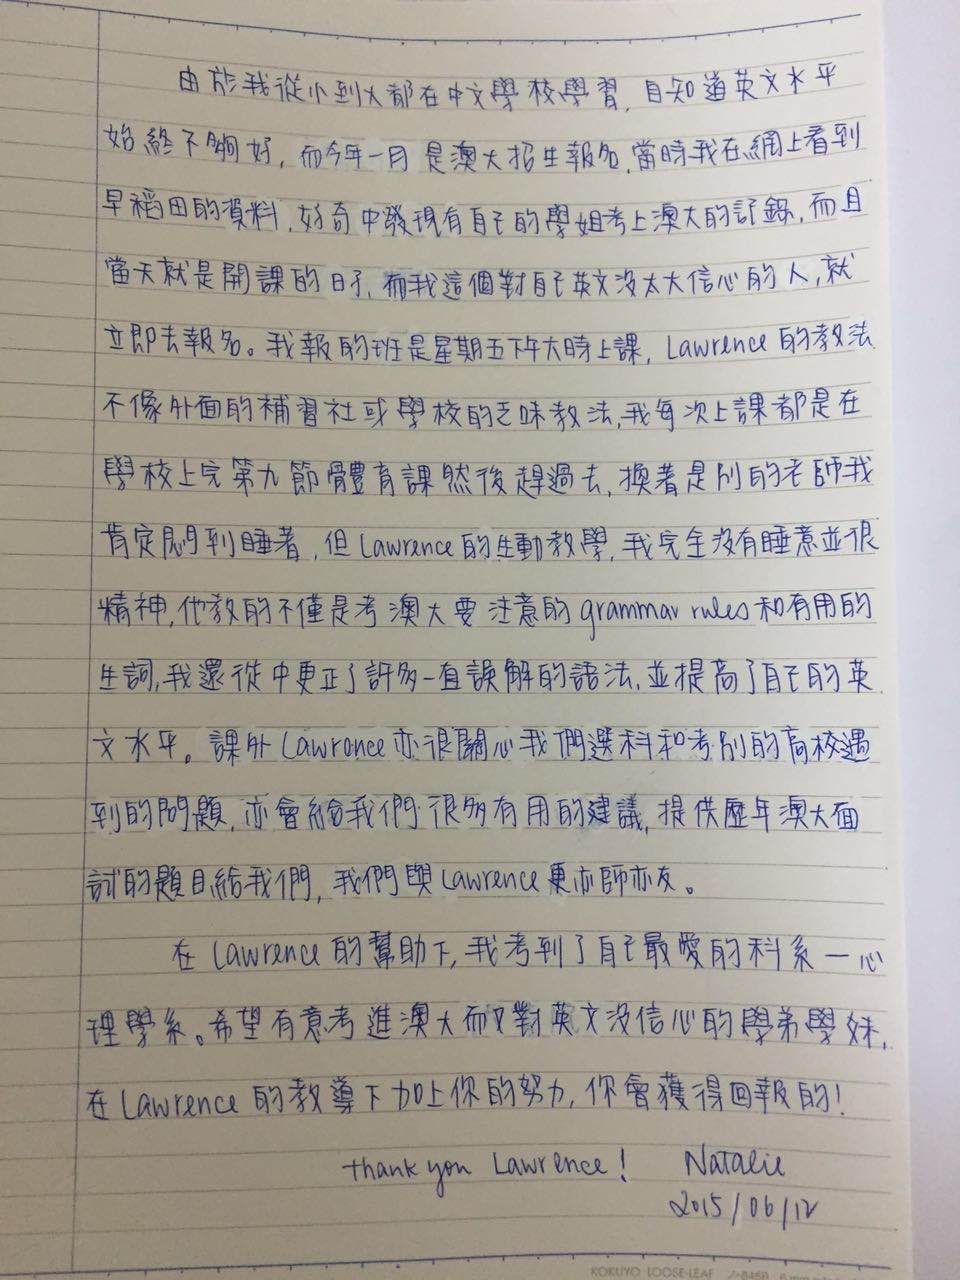 由於我從小到大都在中文學校學習，自知道英文水平
始終不夠好，而今年一月是澳大招生報名，當時我在網上看到
早稻田的資料，好奇中發現有自己的學姐考上澳大的記錄，而且
當天就是開課的日子，而我這個對自己英文沒太大信心的人，就
立即去報名。我報的班是星期五下午六時上課，Lawrence的教法
不像外面的補習社或學校的乏味教法，我每次上課都是在
學校上完第九節體育課然後趕過去，換著是別的老師我
肯定悶到睡著，但Lawrence的生動教學，我完全沒有睡意並很
精神，他教的不僅是考澳大要注意的grammar rules和有用的
生詞，我還從中更正了許多一直誤解的語法，並提高了自己的英
文水平。課外Lawrence亦很關心我們選科和考別的高校遇
到的問題，亦會給我們很多有用的建議，提供歷年澳大面
試的題目給我們，我們與Lawrence東亦師亦友。
在Lawrence的幫助下，我考到了自己最愛的科系一心
理學系。希望有意考進澳大而又對英文沒信心的學弟學妹，
在Lawrence的教導下加上你的努力，你會獲得回報的！
thank you Lawrence! Natalie
2015/06/12
KOKUYO LOOSE-LEAF